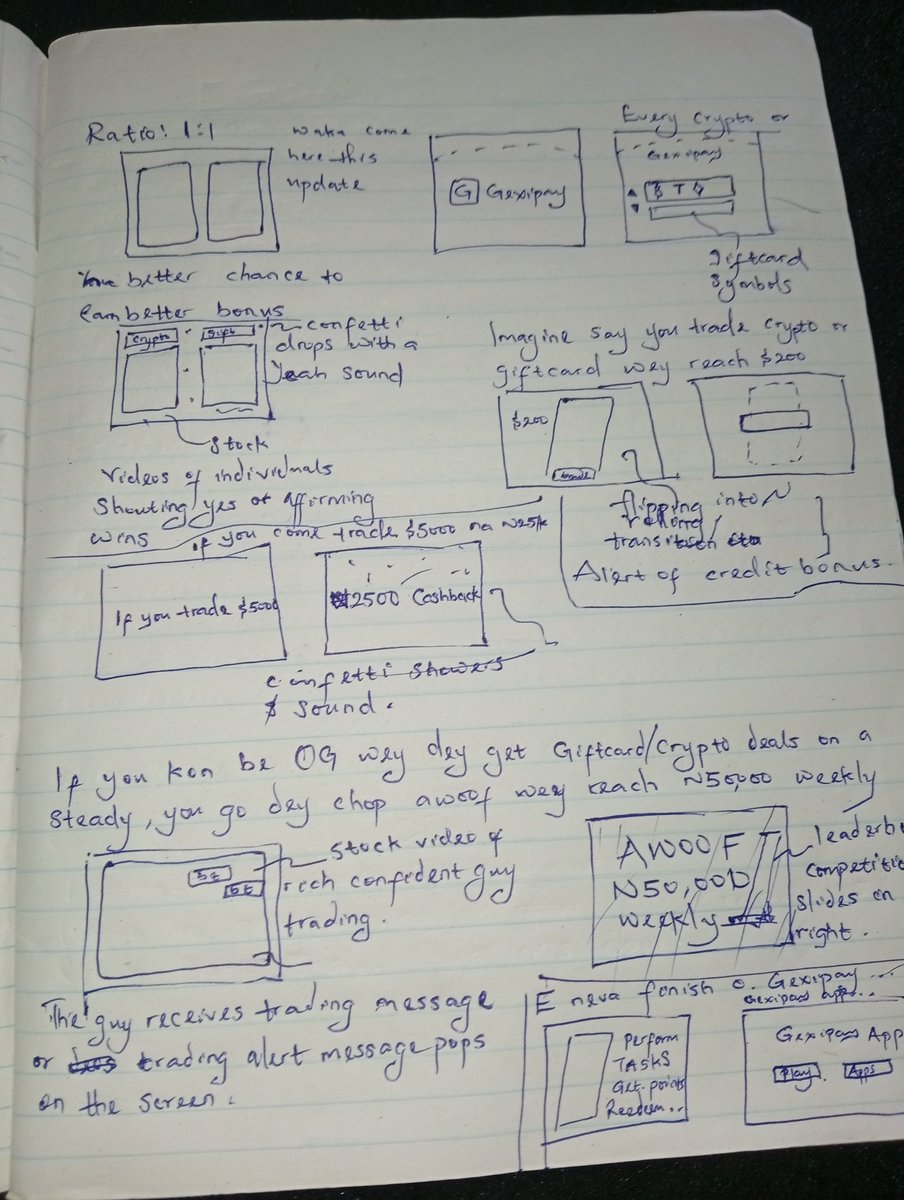 Ratio: 1:1
waka come
here this
update
G Gexipay
Every crypto or
Gexipay
giftcard
symbols
better chance to
Earn better bonus
crypto
Gift
confetti
drops with a
Yeah sound
Stock
Videos of individuals
Shouting yes or affirming
wins
Imagine say you trade crypto or
giftcard wey reach $200
$200
trade
flipping into
transition
Alert of credit bonus.
If you come trade $5000 na
If you trade $5000
2500 Cashback
confetti showers
$ sound.
If you kon be OG wey dey get Giftcard/Crypto deals on a
Steady, you go dey chop awoof wey reach ₦50,000 weekly
Stock video of
rich confident guy
trading.
AWOOF
₦50,000
weekly
leaderb
competitio
slides in
right.
The guy receives trading message
or trading alert message pops
on the screen.
E neva finish o. Gexipay ...
Gexipay apps...
Perform
TASKS
Get points
Redeem..
Gexipay App
Play
Apps